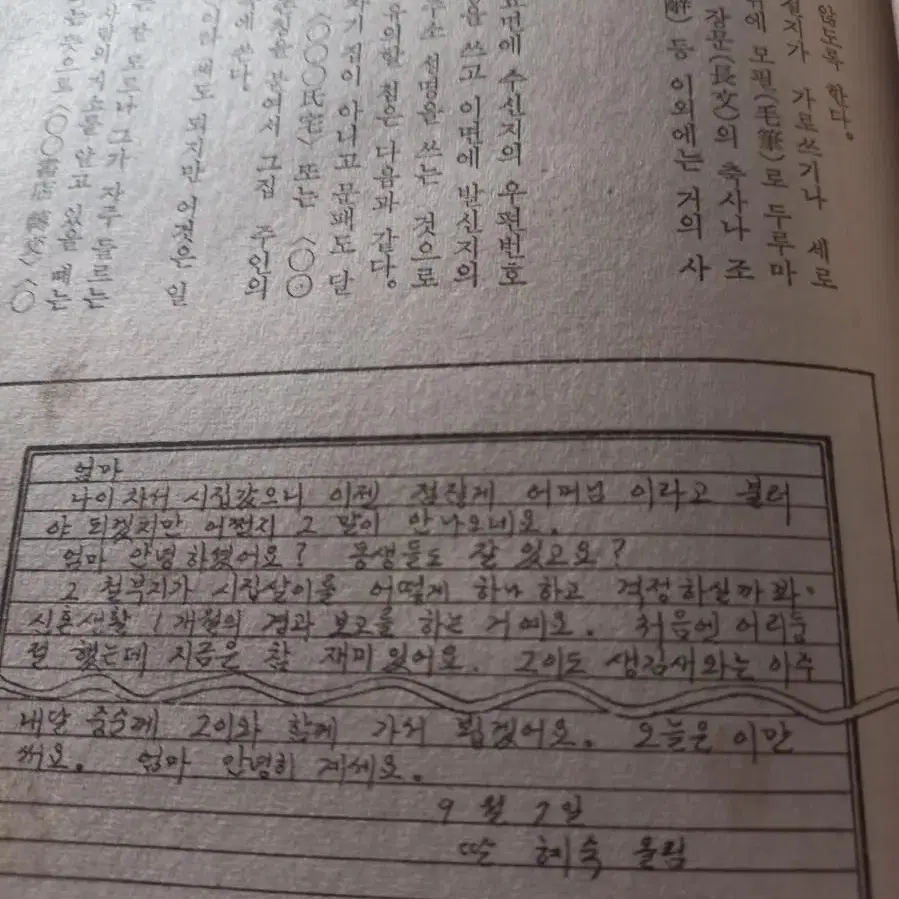 않도록 한다.
가로쓰기나 세로
에 모필(毛筆)로 두루마
장문(長文)의 축사나 조
등 이외에는 거의 사
표면에 수신지의 우편번호
을 쓰고 이면에 발신지의
주소 성명을 쓰는 것으로
유의할 점은 다음과 같다.
집이 아니고 문패도 단
〈○○○氏宅〉 또는 〈○○
붙여서 그집 주인의
에 쓴다.
해도 되지만 이것은 일
모르나 그가 자주 들르는
주소를 알고 있을 때는
으로 〈○○書店 轉交〉〈○
엄마
나이 차서 시집갔으니 이젠 점잖게 어머님 이라고 불러
야 되겠지만 어쩐지 그 말이 안 나오네요.
엄마 안녕 하셨어요? 동생들도 잘 있고요?
그 철부지가 시집살이를 어떻게 하나 하고 걱정하실까 봐.
신혼생활 1개월의 경과 보고를 하는 거예요. 처음엔 어리둥
절 했는데 지금은 참 재미있어요. 그이도 생김새와는 아주
내달 중순께 그이와 함께 가서 뵙겠어요. 오늘은 이만
써요. 엄마 안녕히 계세요.
9월 7일
딸 혜숙 올림